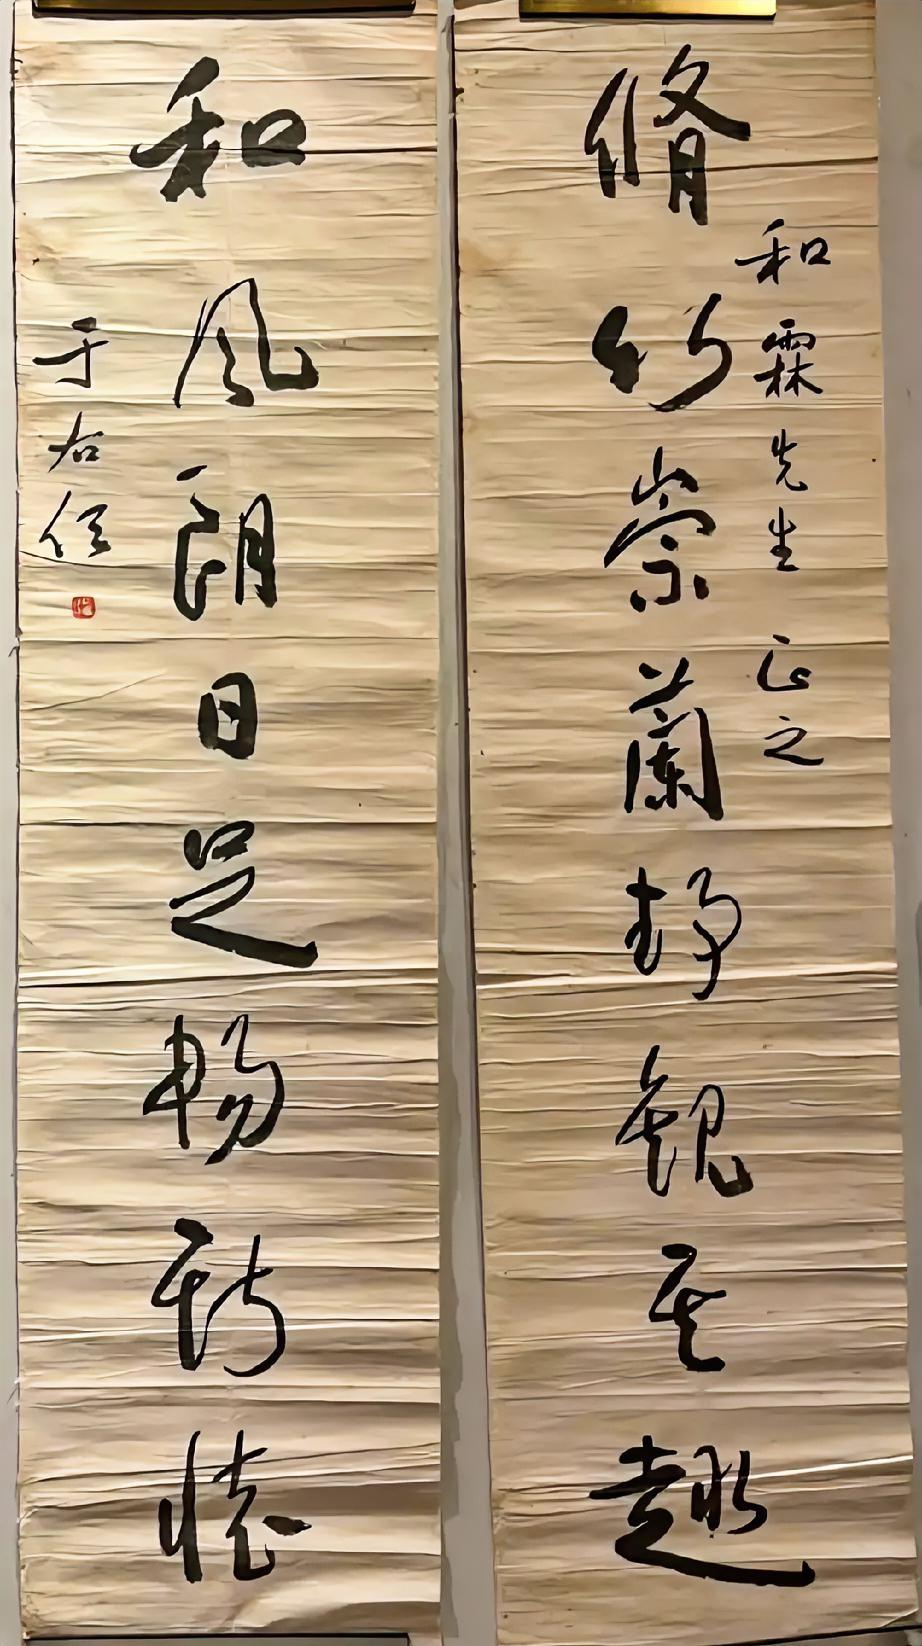 脩竹崇蘭静觀其趣
和霖先生 正之
和風朗日足暢所懷
于右任